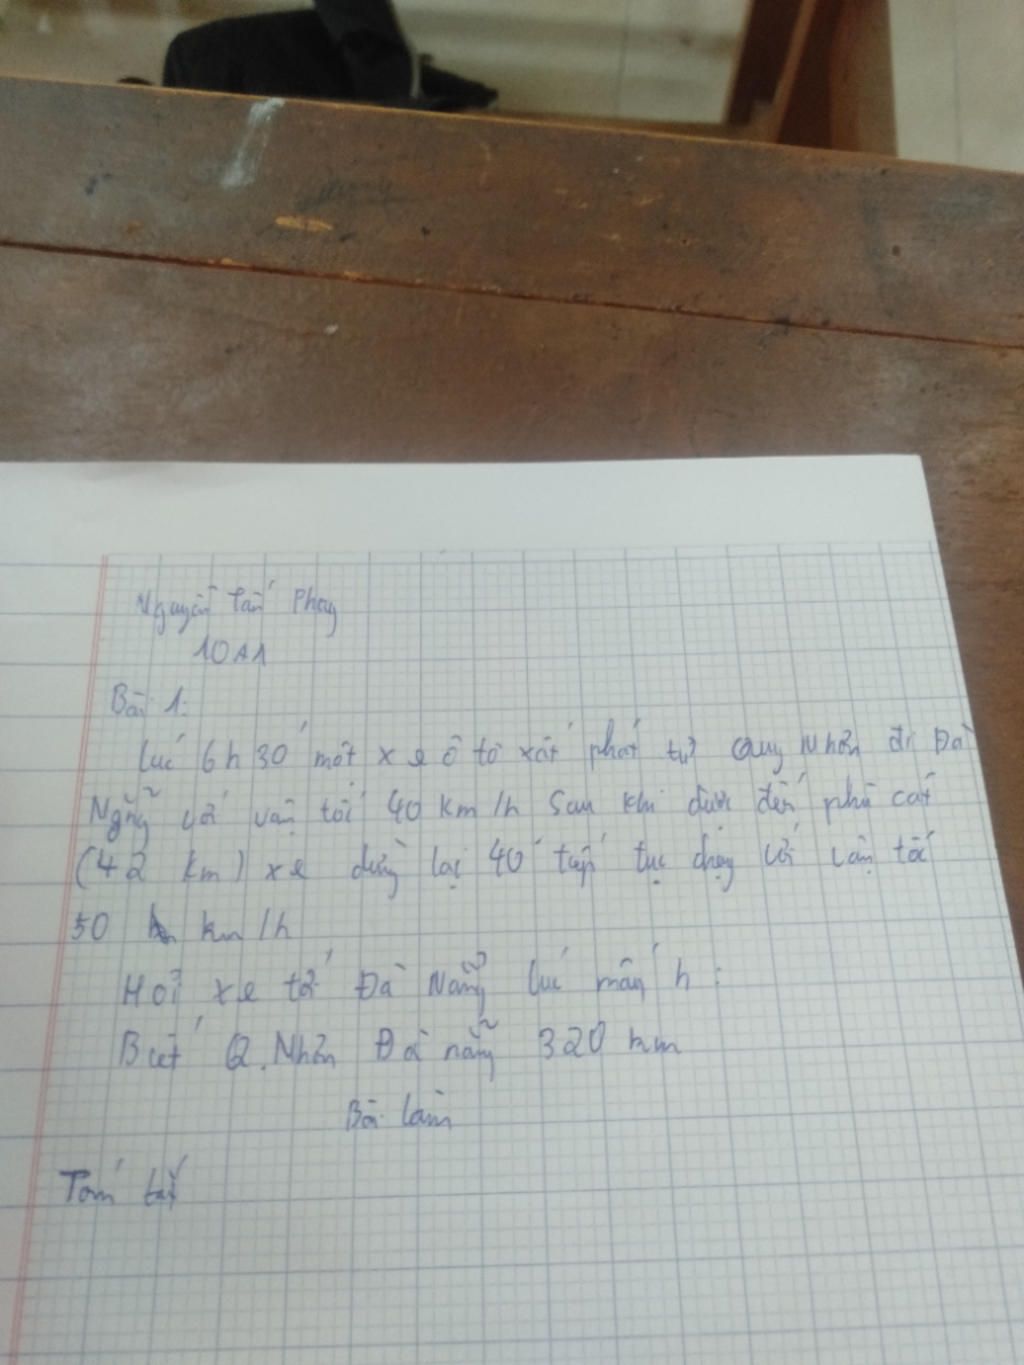 Nguyễn Tấn Phong
10A1
Bài 1:
Lúc 6h30' một xe ô tô xất phát từ Quy Nhơn đi Đà
Nẵng với vận tối 40 km/h Sau khi được đến phù cát
(42 km) xe dừng lại 40' tiếp tục chạy với vận tốc
50 km/h
Hỏi xe tới Đà Nẵng lúc mấy h:
Biết Q.Nhơn Đà nẵng 320 km
Bài làm
Tóm tắt